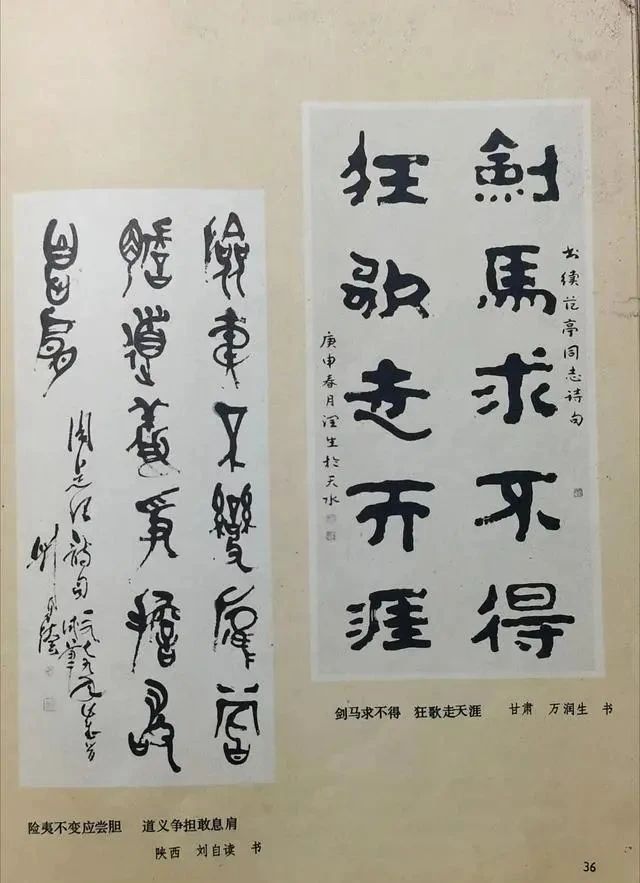 劍馬求不得
狂歌走天涯
书续范亭同志诗句
庚申春月润生於天水
剑马求不得 狂歌走天涯 甘肃 万润生 书
險夷不變應嘗
膽道義爭擔敢
息肩
周总理诗句
险夷不变应尝胆 道义争担敢息肩
陕西 刘自读 书
36